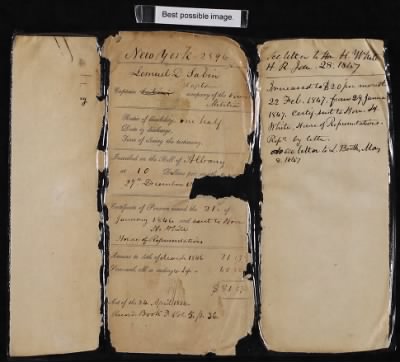 Best possible image.
New York 2896
Lemuel Sabin
Captain
company of the
Militia
Rate of disability, one half
Date of discharge,
Time of closing the testimony,
Inscribed on the Roll of Albany
at 10 Dollars per
29th December
Certificate of Pension issued the 21st of
January 1846 and sent to Hon
H. White
House of Representatives
Arrears to 4th of March 1846
Act of the 24 April 1816
Record Book D Vol 5, p. 36
See letter to Hon H White
H R Jan 28. 1847
Increased to $20 pr month
22 Feb. 1847. from 29 January
1847. Certif. sent to Hon. H
White House of Representatives
by letter.
See letter to L. May
1847